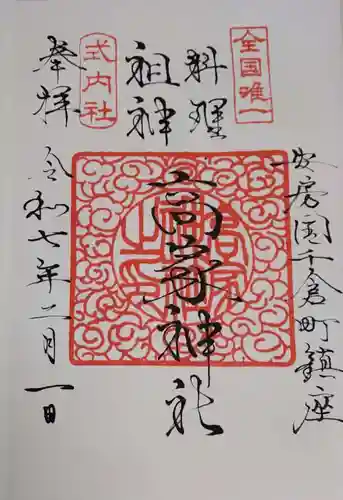 全国唯一
安房国千倉町鎮座
料理
祖神
高家神社
式内社
奉拝
令和七年二月一日